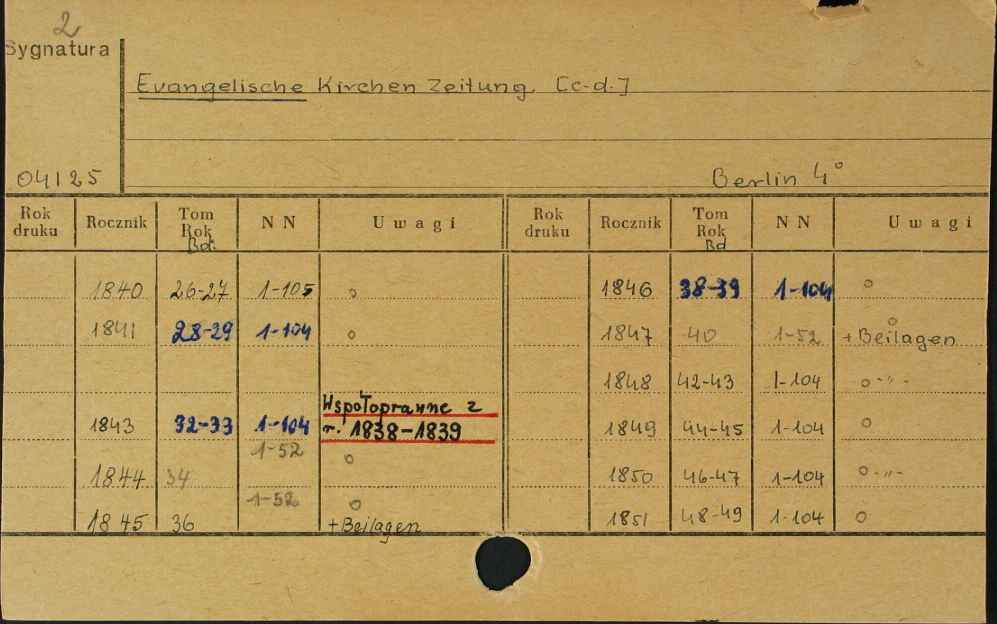 2
Sygnatura
Evangelische Kirchen Zeitung. [c.d.]
04125
Berlin 4°
Rok druku Rocznik Tom Rok Bd. NN Uwagi Rok druku Rocznik Tom Rok Bd NN Uwagi
1840 26-27 1-105 o 1846 38-39 1-104 o
1841 28-29 1-104 o 1847 40 1-52 o + Beilagen
1848 42-43 1-104 o -"-
1843 32-33 1-104 Wspołoprawne z r. 1838-1839 1849 44-45 1-104 o
1844 34 1-52 o 1850 46-47 1-104 o -"-
1845 36 1-52 o + Beilagen 1851 48-49 1-104 o